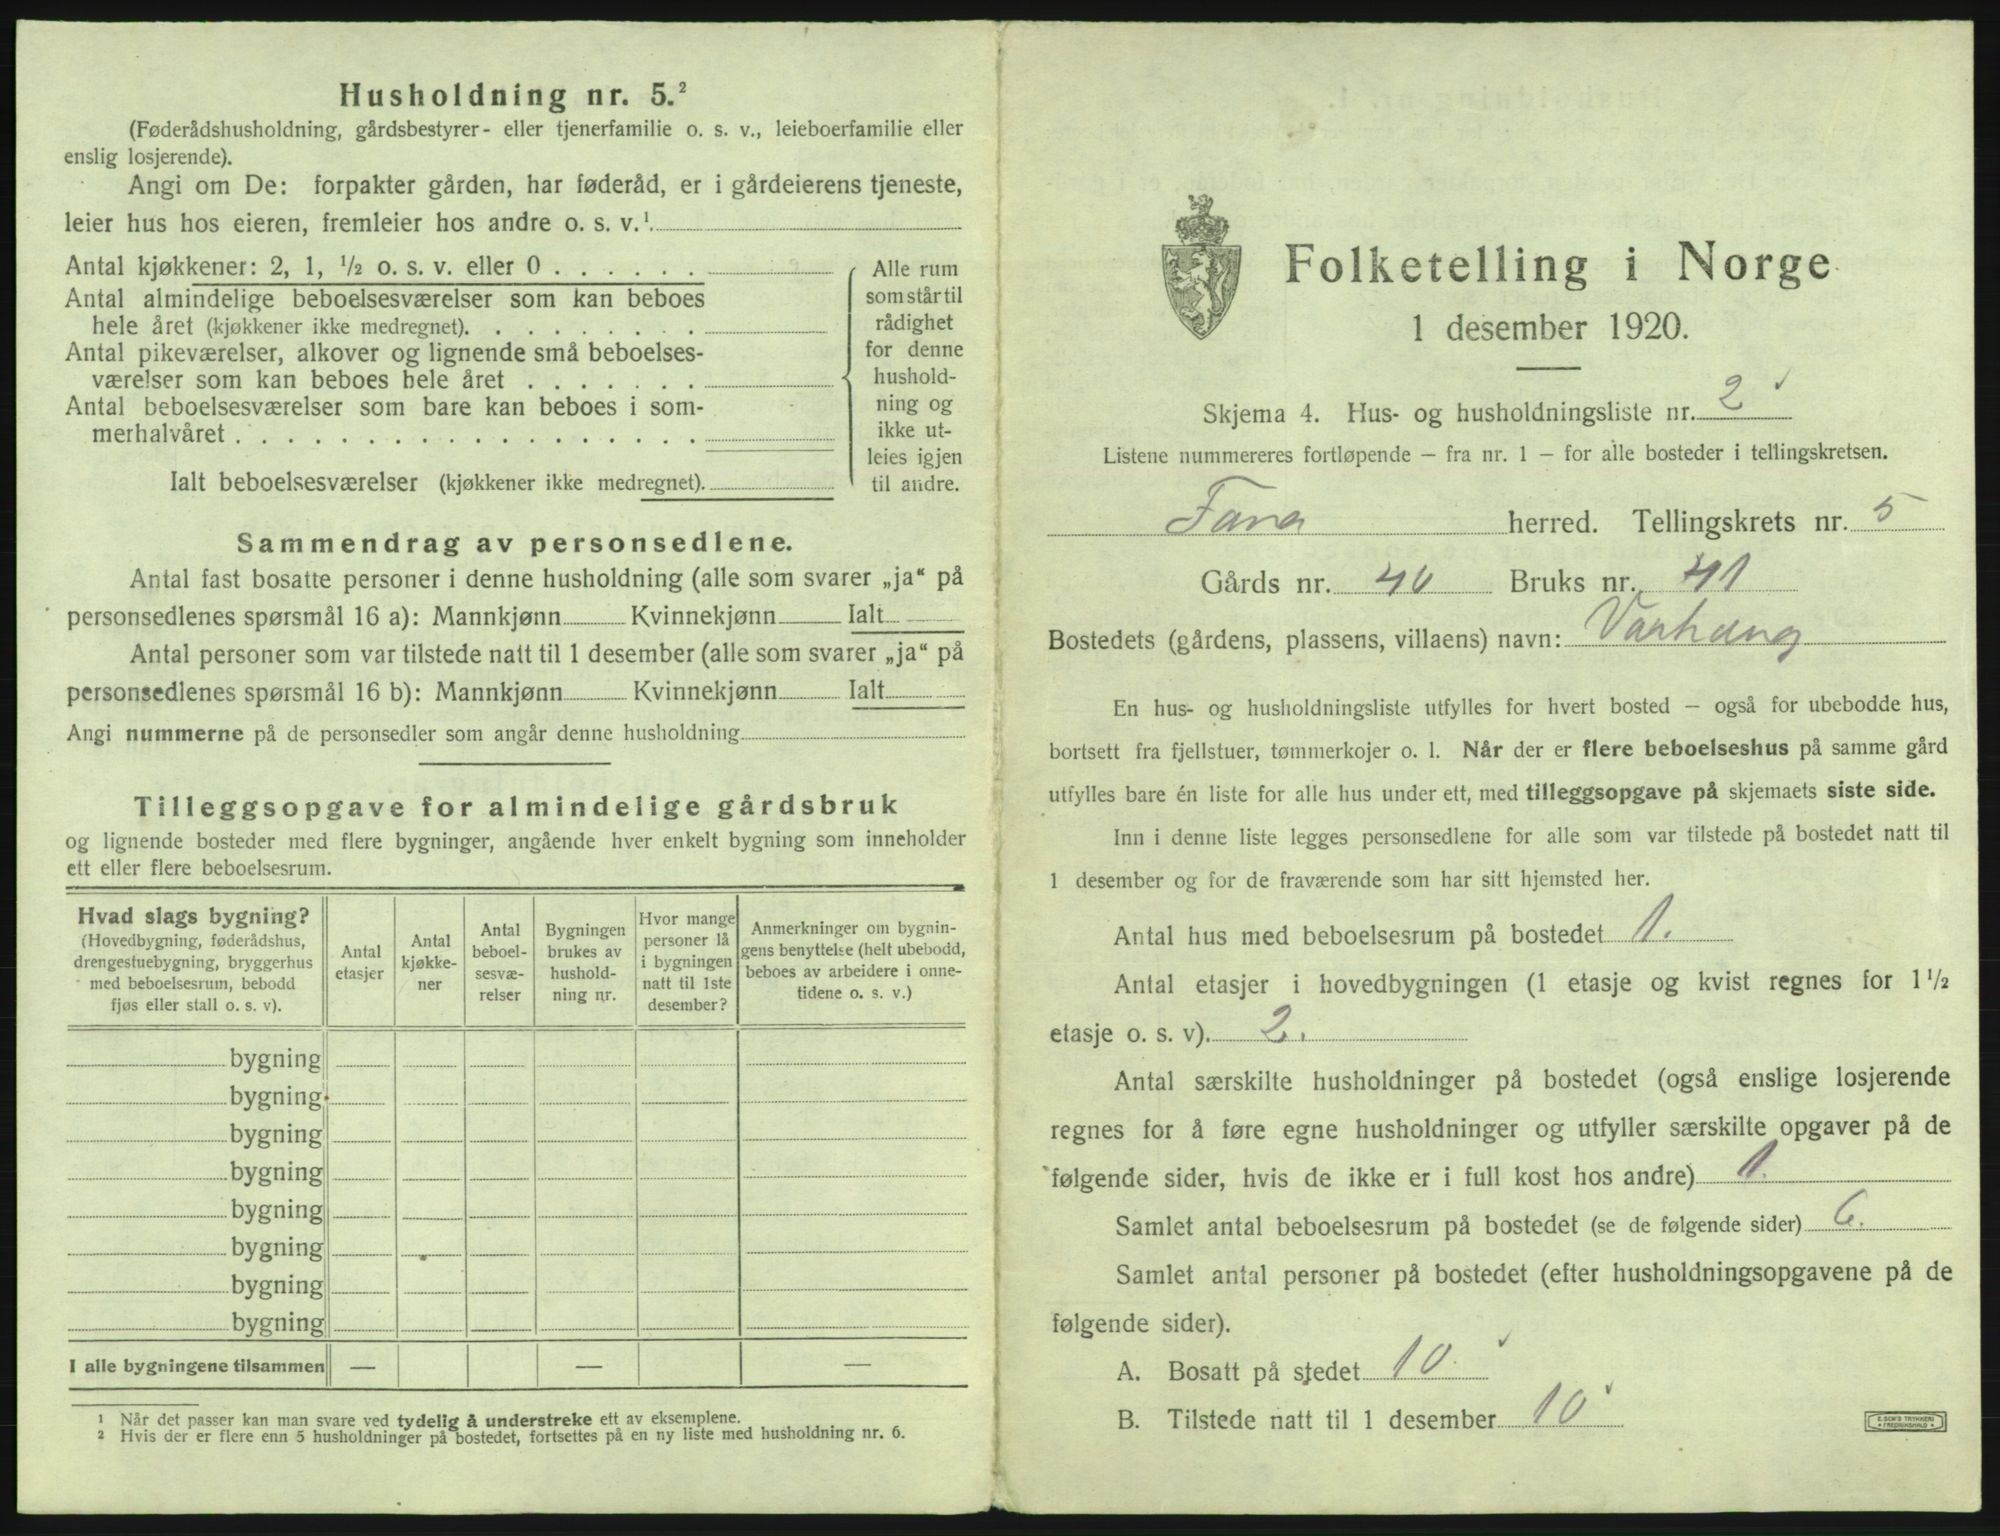 Husholdning nr. 5.²
(Føderådshusholdning, gårdsbestyrer- eller tjenerfamilie o. s. v., leieboerfamilie eller
enslig losjerende).
Angi om De: forpakter gården, har føderåd, er i gårdeierens tjeneste,
leier hus hos eieren, fremleier hos andre o. s. v.¹
Antal kjøkkener: 2, 1, ½ o. s. v. eller 0 . . . . . .
Antal almindelige beboelsesværelser som kan beboes
hele året (kjøkkener ikke medregnet). . . . . . . . .
Antal pikeværelser, alkover og lignende små beboelses-
værelser som kan beboes hele året . . . . . . .
Antal beboelsesværelser som bare kan beboes i som-
merhalvåret . . . . . . . . . . . . . . . . . .
Ialt beboelsesværelser (kjøkkener ikke medregnet).
Alle rum
som står til
rådighet
for denne
hushold-
ning og
ikke ut-
leies igjen
til andre.
Sammendrag av personsedlene.
Antal fast bosatte personer i denne husholdning (alle som svarer „ja“ på
personsedlenes spørsmål 16 a): Mannkjønn Kvinnekjønn Ialt
Antal personer som var tilstede natt til 1 desember (alle som svarer „ja“ på
personsedlenes spørsmål 16 b): Mannkjønn Kvinnekjønn Ialt
Angi nummerne på de personsedler som angår denne husholdning
Tilleggsopgave for almindelige gårdsbruk
og lignende bosteder med flere bygninger, angående hver enkelt bygning som inneholder
ett eller flere beboelsesrum.
Hvad slags bygning?
(Hovedbygning, føderådshus,
drengestuebygning, bryggerhus
med beboelsesrum, bebodd
fjøs eller stall o. s. v).
Antal
etasjer
Antal
kjøkke-
ner
Antal
beboel-
sesvæ-
relser
Bygningen
brukes av
hushold-
ning nr.
Hvor mange
personer lå
i bygningen
natt til 1ste
desember?
Anmerkninger om bygnin-
gens benyttelse (helt ubebodd,
beboes av arbeidere i onne-
tidene o. s. v.)
bygning
bygning
bygning
bygning
bygning
bygning
bygning
bygning
I alle bygningene tilsammen — — —
¹ Når det passer kan man svare ved tydelig å understreke ett av eksemplene.
² Hvis der er flere enn 5 husholdninger på bostedet, fortsettes på en ny liste med husholdning nr. 6.
Folketelling i Norge
1 desember 1920.
Skjema 4. Hus- og husholdningsliste nr. 2
Listene nummereres fortløpende – fra nr. 1 – for alle bosteder i tellingskretsen.
Fana herred. Tellingskrets nr. 5
Gårds nr. 40 Bruks nr. 41
Bostedets (gårdens, plassens, villaens) navn: Varhaug
En hus- og husholdningsliste utfylles for hvert bosted – også for ubebodde hus,
bortsett fra fjellstuer, tømmerkojer o. l. Når der er flere beboelseshus på samme gård
utfylles bare én liste for alle hus under ett, med tilleggsopgave på skjemaets siste side.
Inn i denne liste legges personsedlene for alle som var tilstede på bostedet natt til
1 desember og for de fraværende som har sitt hjemsted her.
Antal hus med beboelsesrum på bostedet 1.
Antal etasjer i hovedbygningen (1 etasje og kvist regnes for 1½
etasje o. s. v). 2.
Antal særskilte husholdninger på bostedet (også enslige losjerende
regnes for å føre egne husholdninger og utfyller særskilte opgaver på de
følgende sider, hvis de ikke er i full kost hos andre) 1.
Samlet antal beboelsesrum på bostedet (se de følgende sider) 6.
Samlet antal personer på bostedet (efter husholdningsopgavene på de
følgende sider).
A. Bosatt på stedet 10.
B. Tilstede natt til 1 desember 10
E. SEM'S TRYKKERI
FREDRIKSHALD